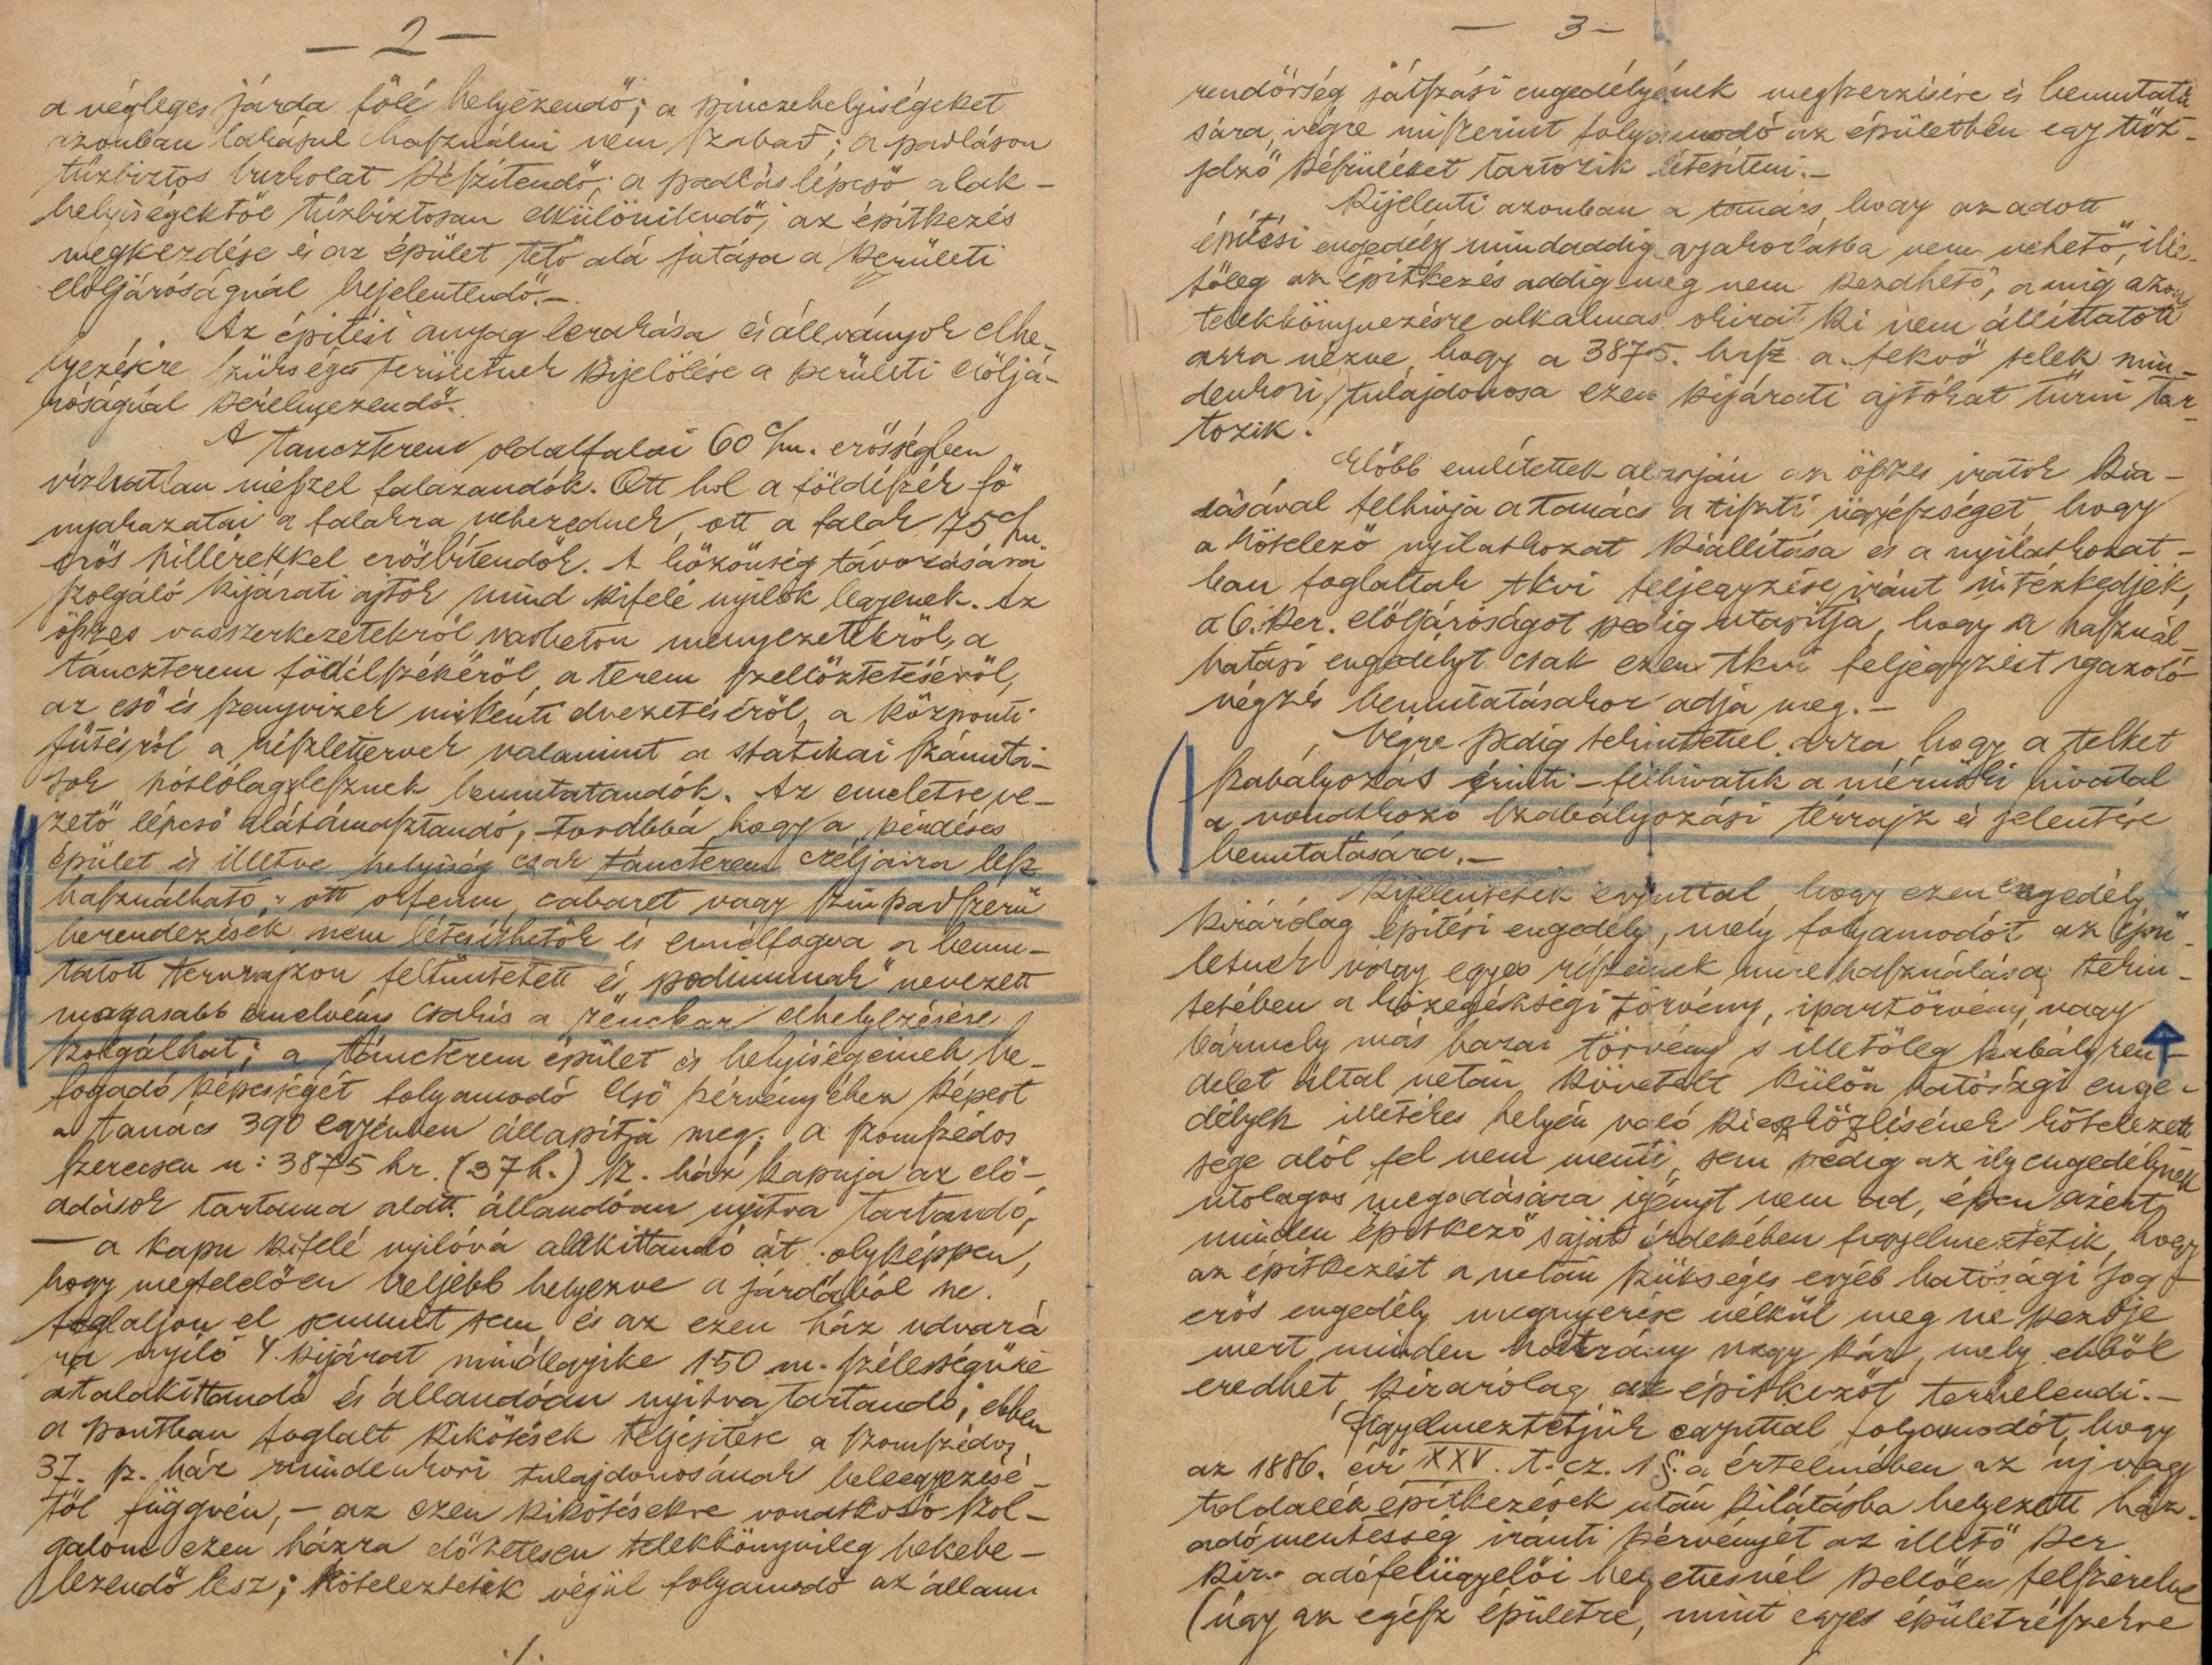 — 2 —
a végleges járda fölé helyezendő; a pinczehelyiségeket
azonban lakásul használni nem szabad; a padláson
tűzbiztos burkolat készítendő; a padláslépcső a lak-
helyiségektől tűzbiztosan elkülönitendő; az építkezés
megkezdése és az épület tető alá jutása a kerületi
elöljáróságnál bejelentendő.—
Az építési anyag lerakása és állványok elhe-
lyezésére szükséges területnek kijelölése a kerületi elöljá-
róságnál kérelmezendő.
A tanczterem oldalfalai 60 c/m. erősségben
vízhatlan mészel falazandók. Ott hol a födélszék fő
nyakazatai a falakra nehezednek, ott a falak 75 c/m
erős pillérekkel erősbitendők. A közönség távozására
szolgáló kijárati ajtók mind kifelé nyilók legyenek. Az
összes vasszerkezetekről, vasbeton menyezetekről, a
táncterem födélszékéről, a terem szellőztetéséről,
az eső és szennyvizek mikénti elvezetéséről, a központi
fűtésről a részlettervek valamint a statikai számitá-
sok pótlólag lesznek bemutatandók. Az emeletre ve-
zető lépcső alátámasztandó, továbbá hogy a kérdéses
épület és illetve helyiség csak táncterem céljaira lesz
használható, ott orfeum, cabaret vagy szinpadszerü
berendezések nem létesíthetők és ennélfogva a bemu-
tatott tervrajzon feltüntetett és „podiumnak" nevezett
magasabb emelvény csakis a zenekar elhelyezésére
szolgálhat; a táncterem épület és helyiségeinek be-
fogadó képességét folyamodó első kérvényéhez képest
a tanács 390 egyénben állapitja meg; a szomszédos
szerecsen u: 3875 hr. (37 h.) sz. ház kapuja az elő-
adások tartama alatt állandóan nyitva tartandó,
— a kapu kifelé nyilóvá alakittandó át olyképpen,
hogy megfelelően beljebb helyezve a járdából ne.
foglaljon el semmit sem és az ezen ház udvará
ra nyíló 4. kijárat mindegyike 150 m. szélességűre
átalakittandó és állandóan nyitva tartandó; ebben
a pontban foglalt kikötések teljesitése a szomszédos
37. sz. ház mindenkori tulajdonosának beleegyezésé-
től függvén, — az ezen kikötésekre vonatkozó szol-
galom ezen házra előzetesen telekkönyvileg bekebe-
lezendő lesz; köteleztetik végül folyamodó az állami
./.
— 3 —
rendőrség játszási engedélyének megszerzésére és bemutatá
sára, végre miszerint folyamodó az épületben egy tűz-
jelző készüléket tartozik létesíteni.—
Kijelenti azonban a tanács, hogy az adott
építési engedély mindaddig gyakorlatba nem vehető, ille-
tőleg az építkezés addig meg nem kezdhető, a mig azon
telekkönyvezésre alkalmas okirat ki nem állíttatott
arra nézve, hogy a 3875. hrsz a. fekvő telek min-
denkori tulajdonosa ezen kijárati ajtókat tűrni tar-
tozik.
Előbb említettek alapján az összes iratok kia-
dásával felhivja a tanács a tiszti ügyészséget, hogy
a kötelező nyilatkozat kiállítása és a nyilatkozat-
ban foglaltak tkvi feljegyzése iránt intézkedjék,
a 6. ker. elöljáróságot pedig utasítja, hogy a használ-
hatási engedélyt csak ezen tkvi feljegyzést igazoló
végzés bemutatásakor adja meg.—
Végre pedig tekintettel arra, hogy a telket
szabályozás érinti — felhivatik a mérnöki hivatal
a vonatkozó szabályozási térrajz és jelentése
bemutatására.—
Kijelentetik egyuttal, hogy ezen engedély
kizárólag építési engedély, mely folyamodót az épü-
letnek vagy egyes részeinek mire használása tekin-
tetében a közegészségi törvény, ipartörvény, vagy
bármely más hazai törvény s illetőleg szabályren-
delet által netán követelt külön hatósági enge-
délyek illetékes helyén való kieszközlésének kötelezett
sége alól fel nem menti, sem pedig az ily engedélynek
utólagos megadására igényt nem ad, épen azért
minden építkező saját érdekében figyelmeztetik, hogy
az építkezést a netán szükséges egyéb hatósági jog-
erős engedély megnyerése nélkül meg ne kezdje
mert minden hátrány vagy kár, mely ebből
eredhet, kizárólag az építkezőt terhelendi.—
Figyelmeztetjük egyuttal folyamodót, hogy
az 1886. évi XXV. t. cz. 1 §. a értelmében az új vagy
toldalék építkezések után kilátásba helyezett ház-
adómentesség iránti kérvényét az illető ker
kir. adófelügyelői helyettesnél kellően felszerelve
(úgy az egész épületre, mint egyes épületrészekre